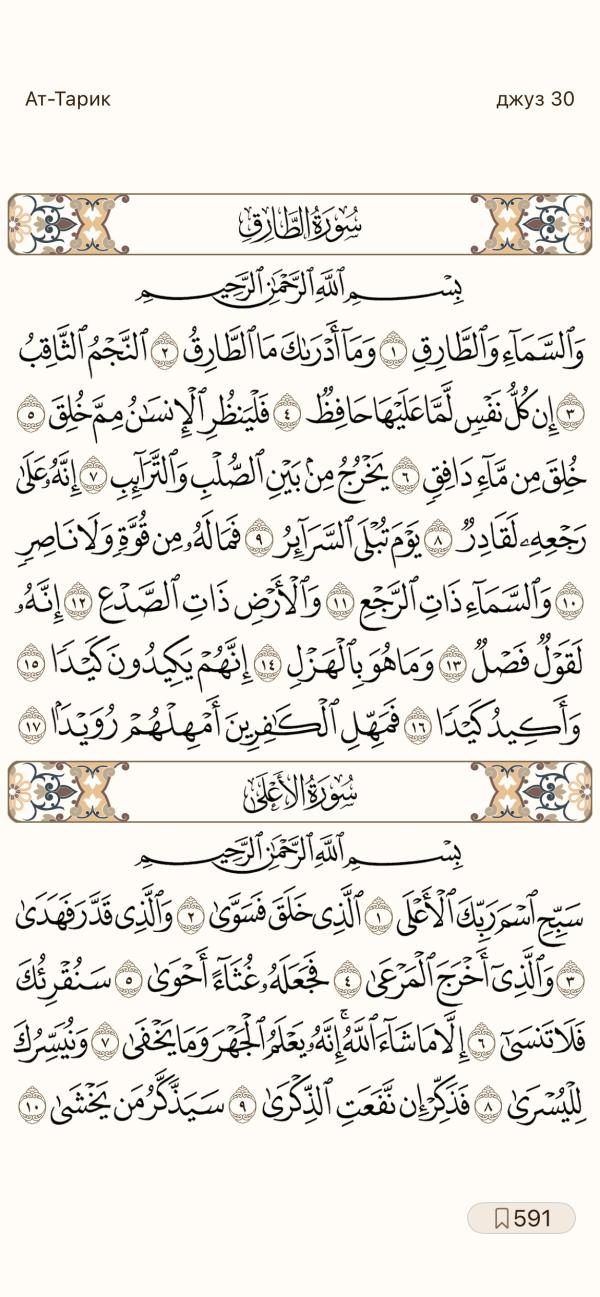 Ат-Тарик
джуз 30
سُورَةُ الطَّارِقِ
بِسْمِ ٱللَّهِ ٱلرَّحْمَٰنِ ٱلرَّحِيمِ
وَٱلسَّمَآءِ وَٱلطَّارِقِ ١ وَمَآ أَدْرَىٰكَ مَا ٱلطَّارِقُ ٢ ٱلنَّجْمُ ٱلثَّاقِبُ
٣ إِن كُلُّ نَفْسٍ لَّمَّا عَلَيْهَا حَافِظٌ ٤ فَلْيَنظُرِ ٱلْإِنسَٰنُ مِمَّ خُلِقَ ٥
خُلِقَ مِن مَّآءٍ دَافِقٍ ٦ يَخْرُجُ مِنۢ بَيْنِ ٱلصُّلْبِ وَٱلتَّرَآئِبِ ٧ إِنَّهُۥ عَلَىٰ
رَجْعِهِۦ لَقَادِرٌ ٨ يَوْمَ تُبْلَى ٱلسَّرَآئِرُ ٩ فَمَا لَهُۥ مِن قُوَّةٍ وَلَا نَاصِرٍ
١٠ وَٱلسَّمَآءِ ذَاتِ ٱلرَّجْعِ ١١ وَٱلْأَرْضِ ذَاتِ ٱلصَّدْعِ ١٢ إِنَّهُۥ
لَقَوْلٌ فَصْلٌ ١٣ وَمَا هُوَ بِٱلْهَزْلِ ١٤ إِنَّهُمْ يَكِيدُونَ كَيْدًا ١٥
وَأَكِيدُ كَيْدًا ١٦ فَمَهِّلِ ٱلْكَٰفِرِينَ أَمْهِلْهُمْ رُوَيْدًۢا ١٧
سُورَةُ الأَعْلَىٰ
بِسْمِ ٱللَّهِ ٱلرَّحْمَٰنِ ٱلرَّحِيمِ
سَبِّحِ ٱسْمَ رَبِّكَ ٱلْأَعْلَى ١ ٱلَّذِى خَلَقَ فَسَوَّىٰ ٢ وَٱلَّذِى قَدَّرَ فَهَدَىٰ
٣ وَٱلَّذِىٓ أَخْرَجَ ٱلْمَرْعَىٰ ٤ فَجَعَلَهُۥ غُثَآءً أَحْوَىٰ ٥ سَنُقْرِئُكَ
فَلَا تَنسَىٰٓ ٦ إِلَّا مَا شَآءَ ٱللَّهُ ۚ إِنَّهُۥ يَعْلَمُ ٱلْجَهْرَ وَمَا يَخْفَىٰ ٧ وَنُيَسِّرُكَ
لِلْيُسْرَىٰ ٨ فَذَكِّرْ إِن نَّفَعَتِ ٱلذِّكْرَىٰ ٩ سَيَذَّكَّرُ مَن يَخْشَىٰ ١٠
591